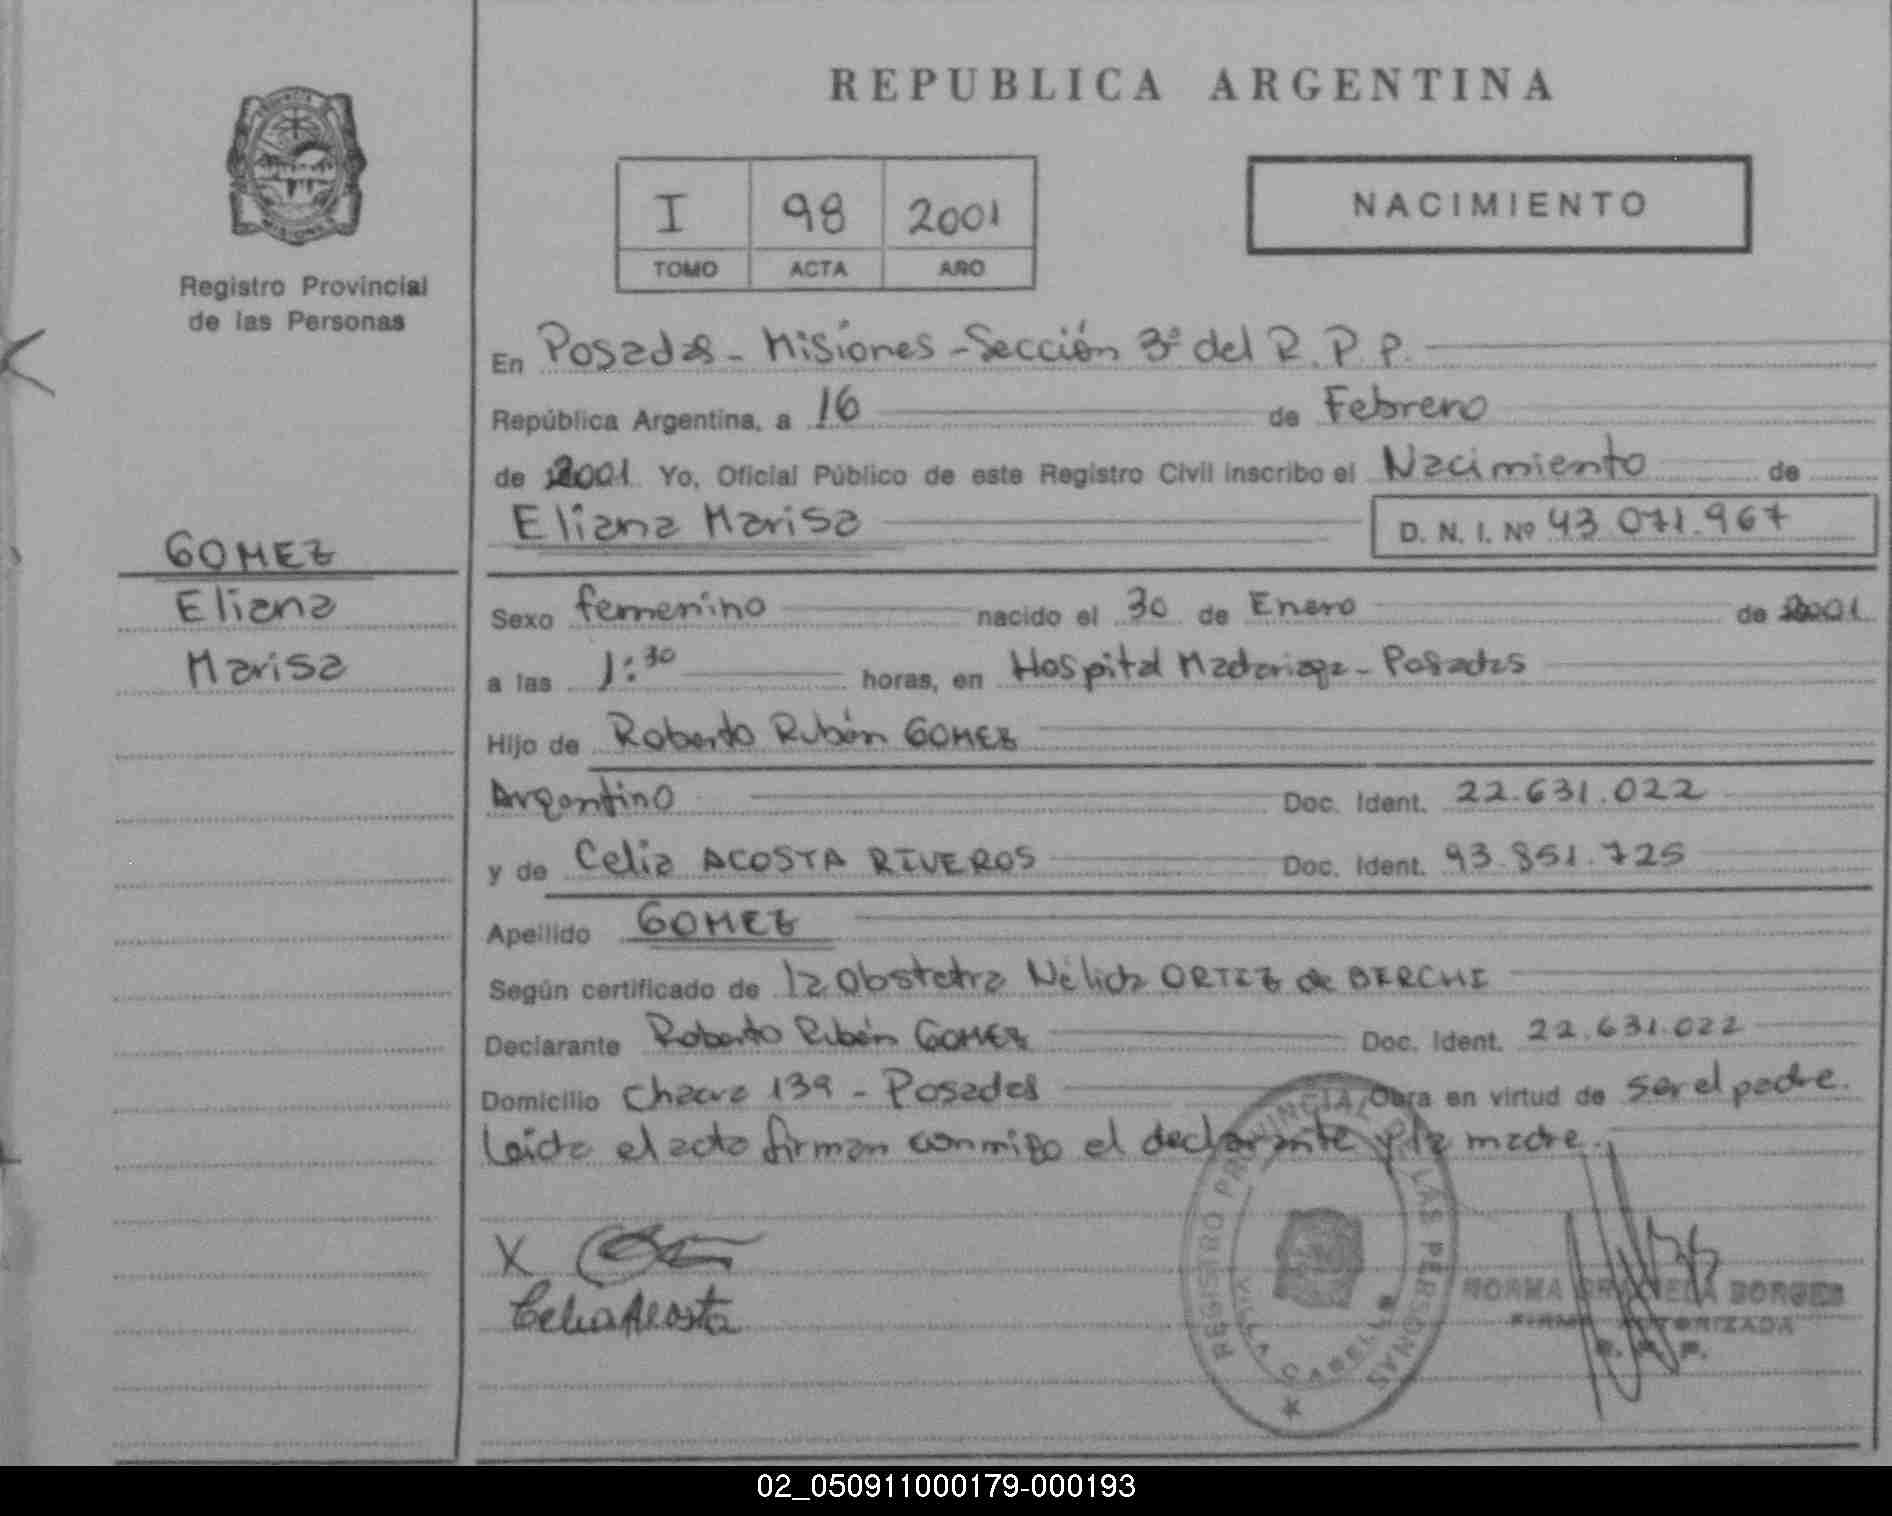 REPUBLICA ARGENTINA
I 98 2001
TOMO ACTA AÑO
NACIMIENTO
Registro Provincial
de las Personas
En Posadas - Misiones - Sección 3ª del R. P. P.
República Argentina, a 16 de Febrero
de 2001 Yo, Oficial Público de este Registro Civil inscribo el Nacimiento de
Eliana Marisa D. N. I. Nº 43.071.967
GOMEZ
Eliana
Marisa
Sexo femenino nacido el 30 de Enero de 2001
a las 1:30 horas, en Hospital Madariaga - Posadas
Hijo de Roberto Rubén GOMEZ
Argentino Doc. Ident. 22.631.022
y de Celia ACOSTA RIVEROS Doc. Ident. 93.851.725
Apellido GOMEZ
Según certificado de la Obstetra Nélida ORTIZ de BERCHI
Declarante Roberto Rubén GOMEZ Doc. Ident. 22.631.022
Domicilio Chacra 139 - Posadas Obra en virtud de ser el padre.
Leída el acta firman conmigo el declarante y la madre.
X
Celia Acosta
REGISTRO PROVINCIAL DE LAS PERSONAS
VILLA CABELLO
NORMA GRACIELA BORGES
FIRMA AUTORIZADA
R. P. P.
02_050911000179-000193